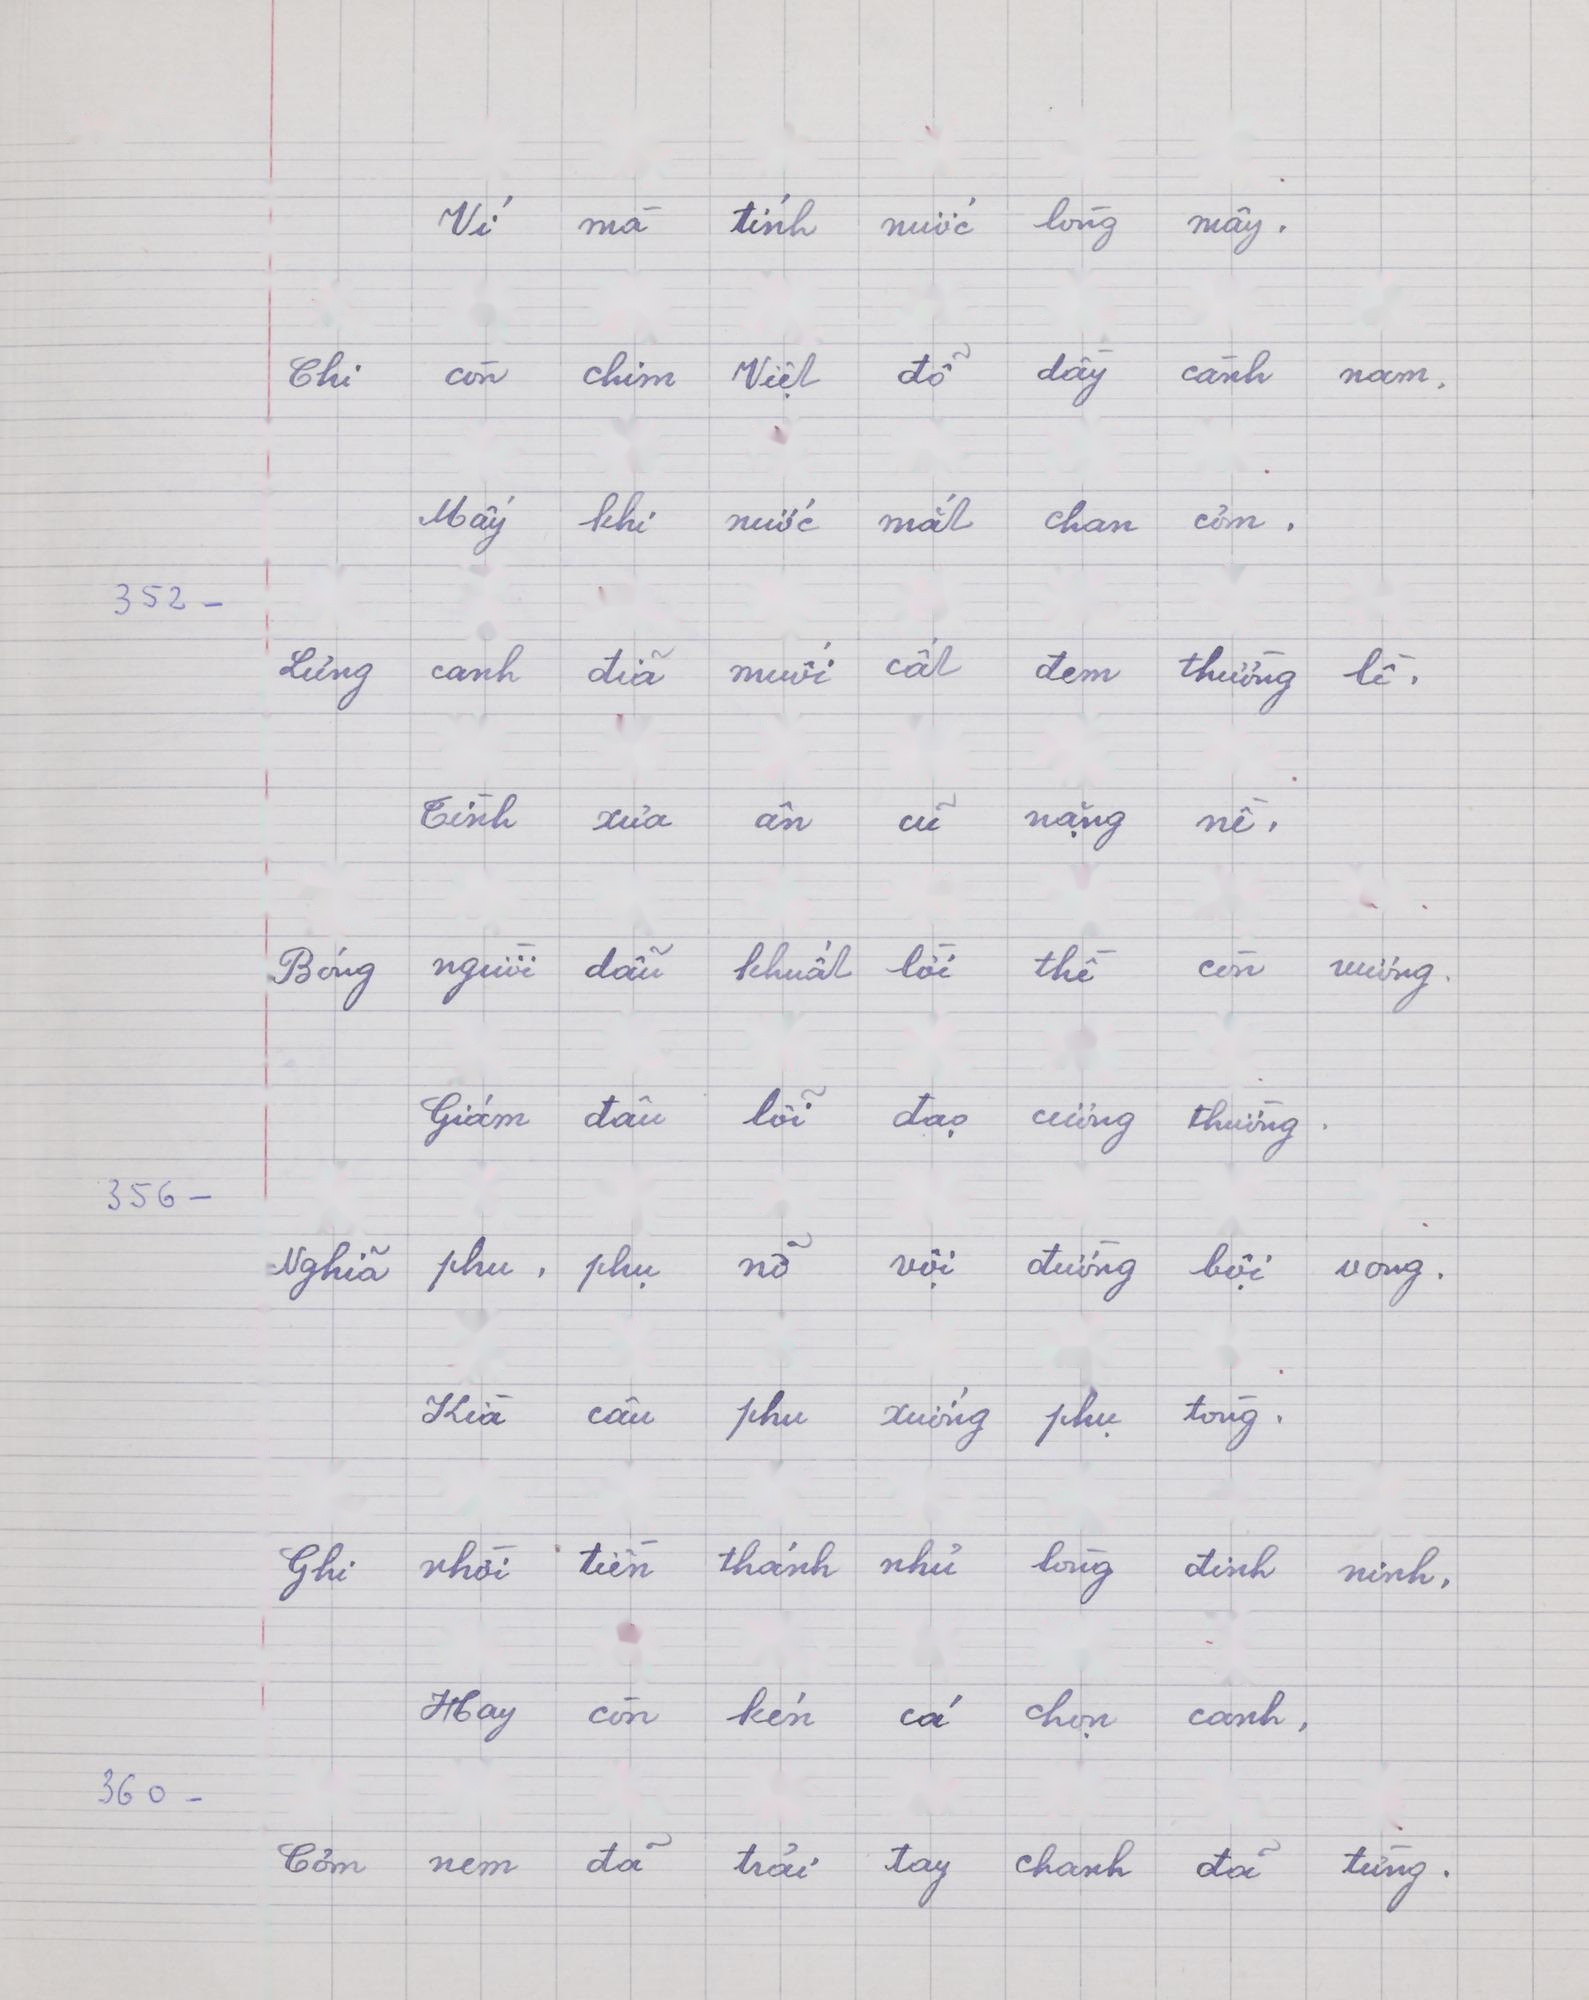 Ví mà tính nước lòng mây.
Chi còn chim Việt đỗ dầy cành nam.
Mấy khi nước mắt chan cơm.
352 -
Lưng canh đĩa muối cất đem thường lề.
Tình xưa ân cũ nặng nề,
Bóng người dẫu khuất lời thề còn vương.
Giám đâu lỗi đạo cương thường.
356 -
Nghĩa phu, phụ nỡ vội đường bội vong.
Kìa câu phu xướng phụ tòng.
Ghi nhời tiền thánh nhủ lòng đinh ninh,
Hay còn kén cá chọn canh,
360 -
Cơm nem đã trải tay chanh đã từng.